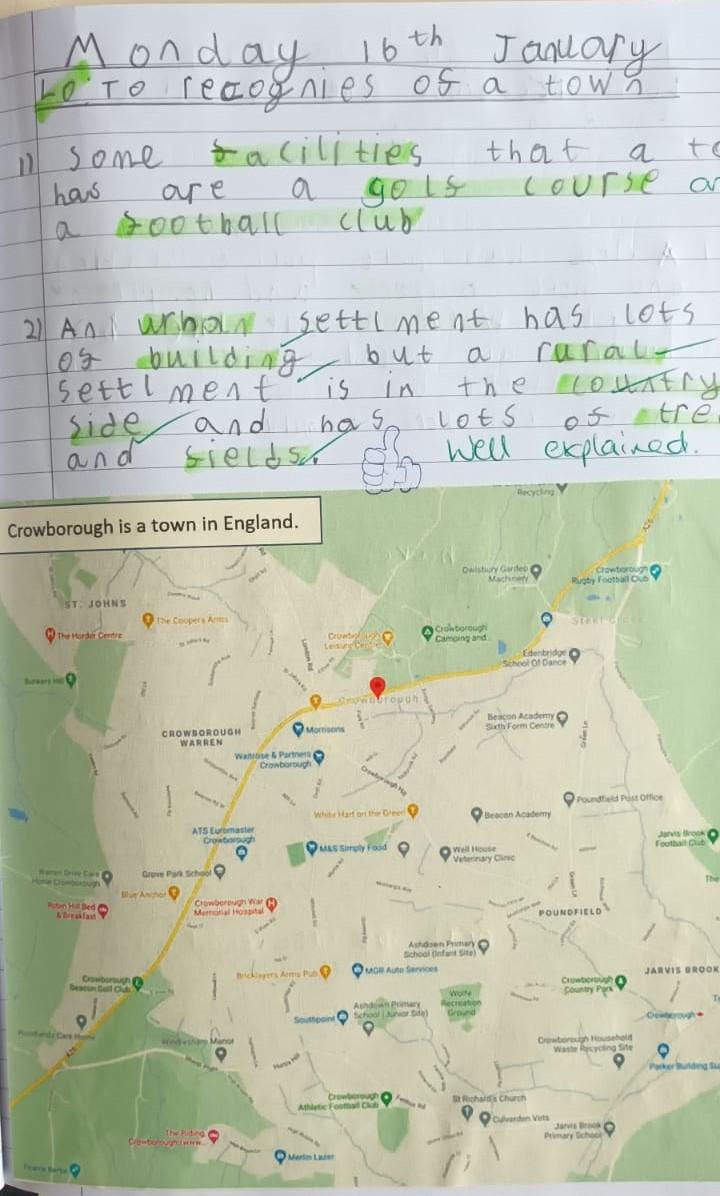 Monday 16th January
LO: To recognies of a town
1) Some facilities that a to
has are a golf course or
a football club
2) An urban settlment has lots
of building but a rural
settlment is in the country
side and has lots of tre
and fields. Well explained.
Crowborough is a town in England.
Recycling
A26
Owlsbury Garden
Machinery
Crowborough
Rugby Football Club
ST. JOHNS
The Coopers Arms
The Horder Centre
Crowborough
Leisure Centre
Crowborough
Camping and
Steel Cross
Edenbridge
School Of Dance
Crowborough
CROWBOROUGH
WARREN
Morrisons
Beacon Academy
Sixth Form Centre
Green Ln
Waitrose & Partners
Crowborough
Crowborough Hill
Poundfield Post Office
White Hart on the Green
Beacon Academy
ATS Euromaster
Crowborough
M&S Simply Food
Well House
Veterinary Clinic
Jarvis Brook
Football Club
The
Grove Park School
Warren Drive Care
Home Crowborough
Blue Anchor
Robin Hill Bed
& Breakfast
Crowborough War
Memorial Hospital
Green Ln
POUNDFIELD
Ashdown Primary
School (Infant Site)
Bricklayers Arms Pub
MGR Auto Services
JARVIS BROOK
Crowborough
Beacon Golf Club
Crowborough
Country Park
Wolfe
Recreation
Ground
Ashdown Primary
School (Junior Site)
Southpoint
Crowborough
Windlesham Manor
Crowborough Household
Waste Recycling Site
Parker Building Su
A26
Crowborough
Athletic Football Club
St Richard's Church
Culverden Vets
Jarvis Brook
Primary School
The Riding
Crowborough
Merlin Lazer